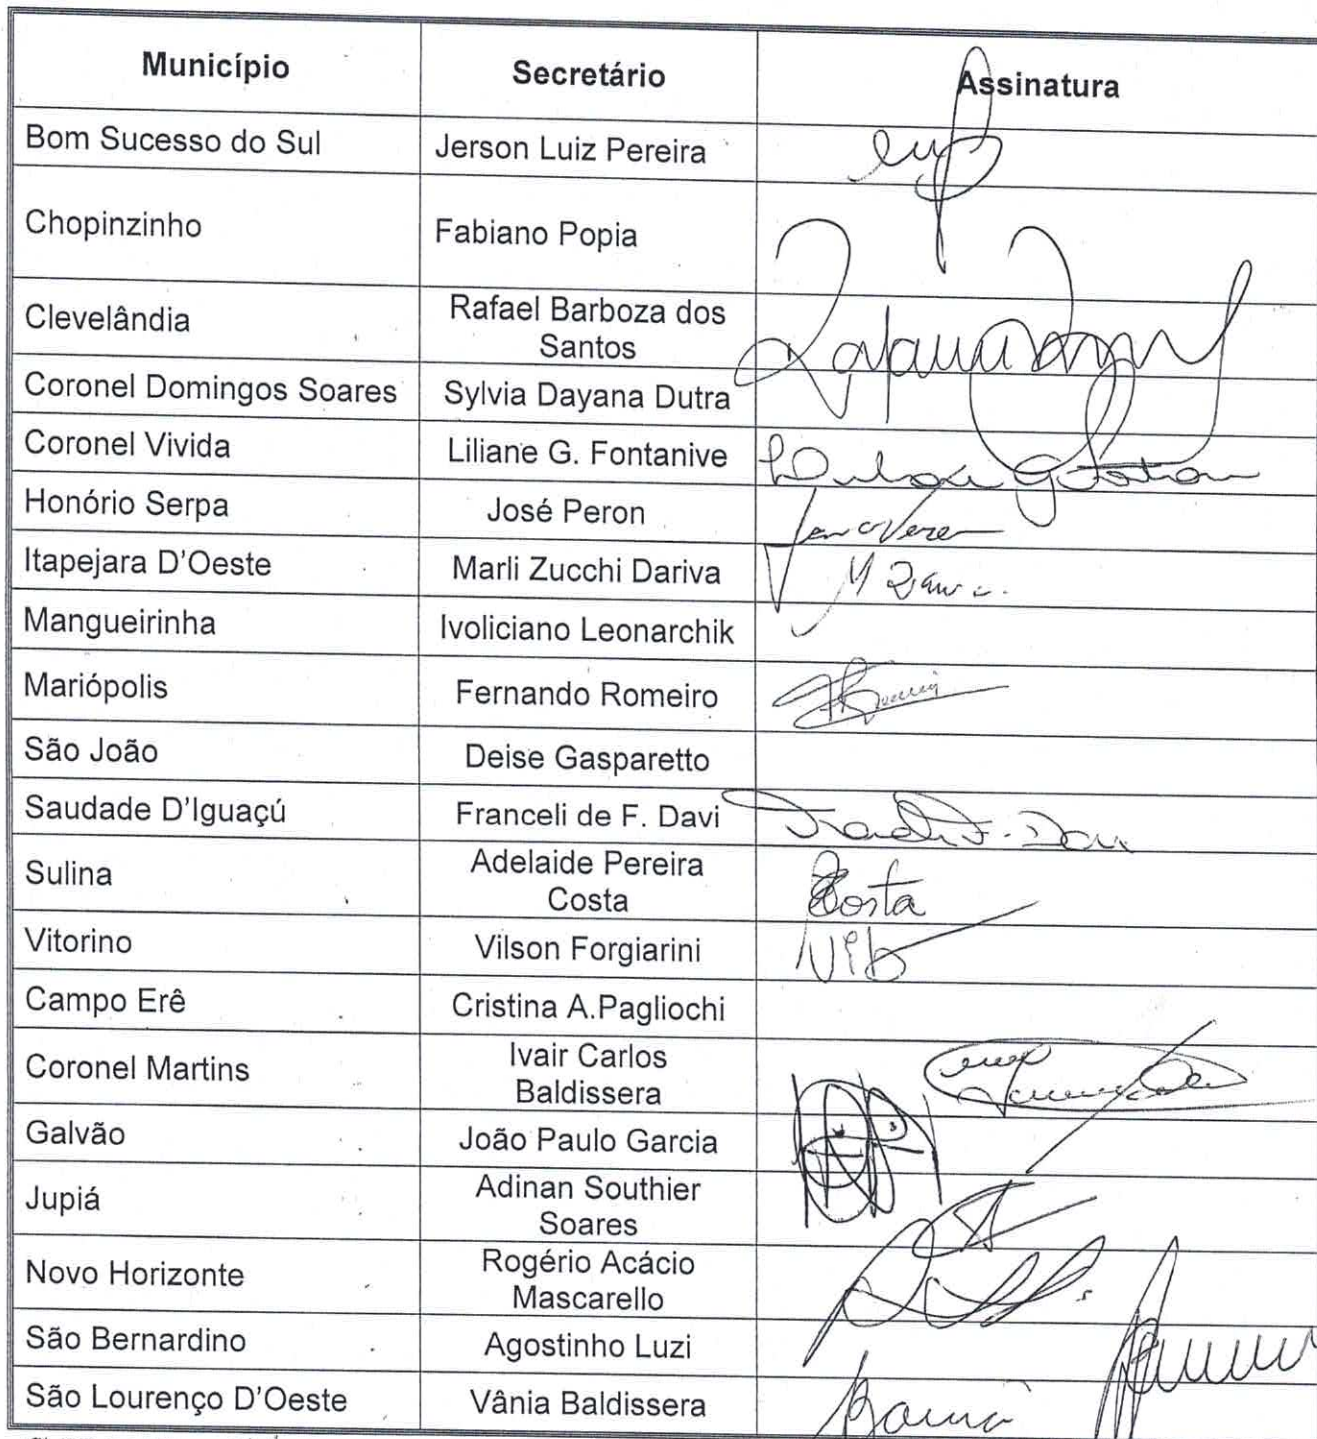 Município Secretário Assinatura
Bom Sucesso do Sul Jerson Luiz Pereira
Chopinzinho Fabiano Popia
Clevelândia Rafael Barboza dos
Santos
Coronel Domingos Soares Sylvia Dayana Dutra
Coronel Vivida Liliane G. Fontanive
Honório Serpa José Peron
Itapejara D'Oeste Marli Zucchi Dariva
Mangueirinha Ivoliciano Leonarchik
Mariópolis Fernando Romeiro
São João Deise Gasparetto
Saudade D'Iguaçú Franceli de F. Davi
Sulina Adelaide Pereira
Costa Costa
Vitorino Vilson Forgiarini
Campo Erê Cristina A.Pagliochi
Coronel Martins Ivair Carlos
Baldissera
Galvão João Paulo Garcia
Jupiá Adinan Southier
Soares
Novo Horizonte Rogério Acácio
Mascarello
São Bernardino Agostinho Luzi
São Lourenço D'Oeste Vânia Baldissera